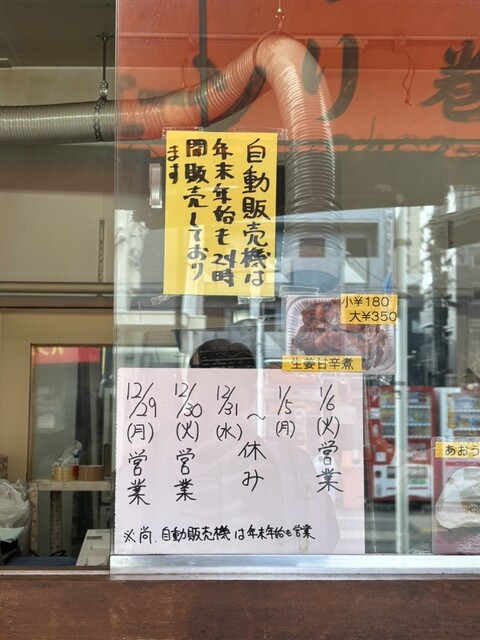 り
巻
自動販売機は
年末年始も24時
間販売しており
ます
小¥180
大¥350
生姜甘辛煮
12/29
(月)
営業
12/30
(火)
営業
12/31
(水)
〜
休み
1/5
(月)
1/6
(火)
営業
※尚、自動販売機は年末年始も営業
あおう